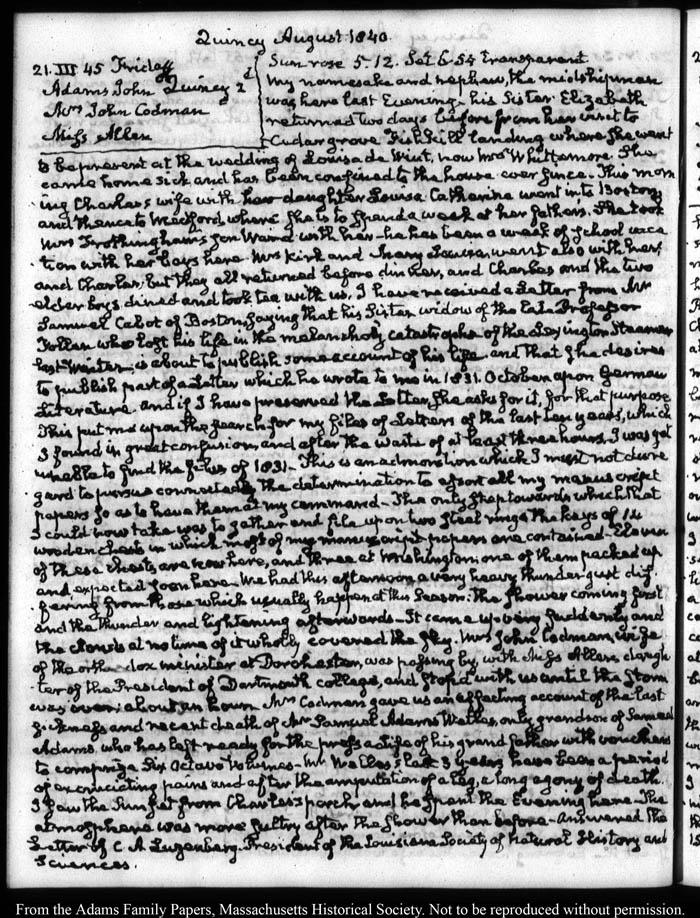 Quincy August 1840.
21. III 45 Friday
Adams John Quincy 2d
Mrs John Codman
Miss Allen
Sun rose 5-12. Set 6-54 Transparent
My namesake and nephew, the midshipman
was here last Evening. his Sister Elizabeth
returned two days before from her visit to
Cedar grove Fishkill landing where she went
to be present at the wedding of Louisa de Wint, now Mrs Whittemore. She
came home sick and has been confined to the house ever since. This morn
ing Charles's wife with her daughter Louisa Catherine went into Boston,
and thence to Medford, where she is to spend a week at her fathers. She took
Mrs Frothingham's Son Ward with her—he has been a week of school vaca
tion with her boys here. Mrs Kirk and Mary Louisa, went also with her;
and Charles; but they all returned before dinner, and Charles and the two
elder boys dined and took tea with us. I have received a Letter from Mr
Samuel Cabot of Boston, saying that his Sister widow of the late Professor
Follen who lost his life in the melancholy catastrophe of the Lexington Steamer
last Winter, is about to publish some account of his life and that she desires
to publish part of a Letter which he wrote to me in 1831. October upon German
Literature and if I have preserved the Letter, she asks for it, for that purpose
This put me upon the search for my files of Letters of the last ten years, which
I found in great confusion, and after the waste of at least three hours, I was yet
unable to find the files of 1831— This is an admonition which I must not disre
gard to pursue connectedly the determination to assort all my manuscript
papers so as to have them at my command— The only step towards which that
I could now take was to gather and file upon two steel rings the keys of 14
wooden chests in which most of my manuscript papers are contained— Eleven
of these chests are now here, and three at Washington: one of them packed up
and expected soon here— We had this afternoon a very heavy thunder gust dif-
fering from those which usually happen at this Season: the shower coming first
and the thunder and lightening afterwards— It came up very suddenly and
the clouds at no time of it wholly covered the sky. Mrs John Codman, wife
of the orthodox minister at Dorchester, was passing by, with Miss Allen, daugh
ter of the President of Dartmouth college, and stop'd with us until the storm
was over: about an hour. Mrs Codman gave us an affecting account of the last
sickness and recent death of Mr Samuel Adams Welles, only grandson of Samuel
Adams, who has left ready for the press a Life of his grandfather with vouchers
to comprize Six Octavo Volumes— Mr Welles's last 3 years have been a period
of excruciating pains and after the amputation of a leg, a long agony of death.
I saw the Sun set from Charles's porch and he spent the Evening here. The
atmosphere was more sultry after the shower than before— Answered the
Letter of C. A Luzenberg. President of the Louisiana Society of Natural History and
Sciences.
From the Adams Family Papers, Massachusetts Historical Society. Not to be reproduced without permission.